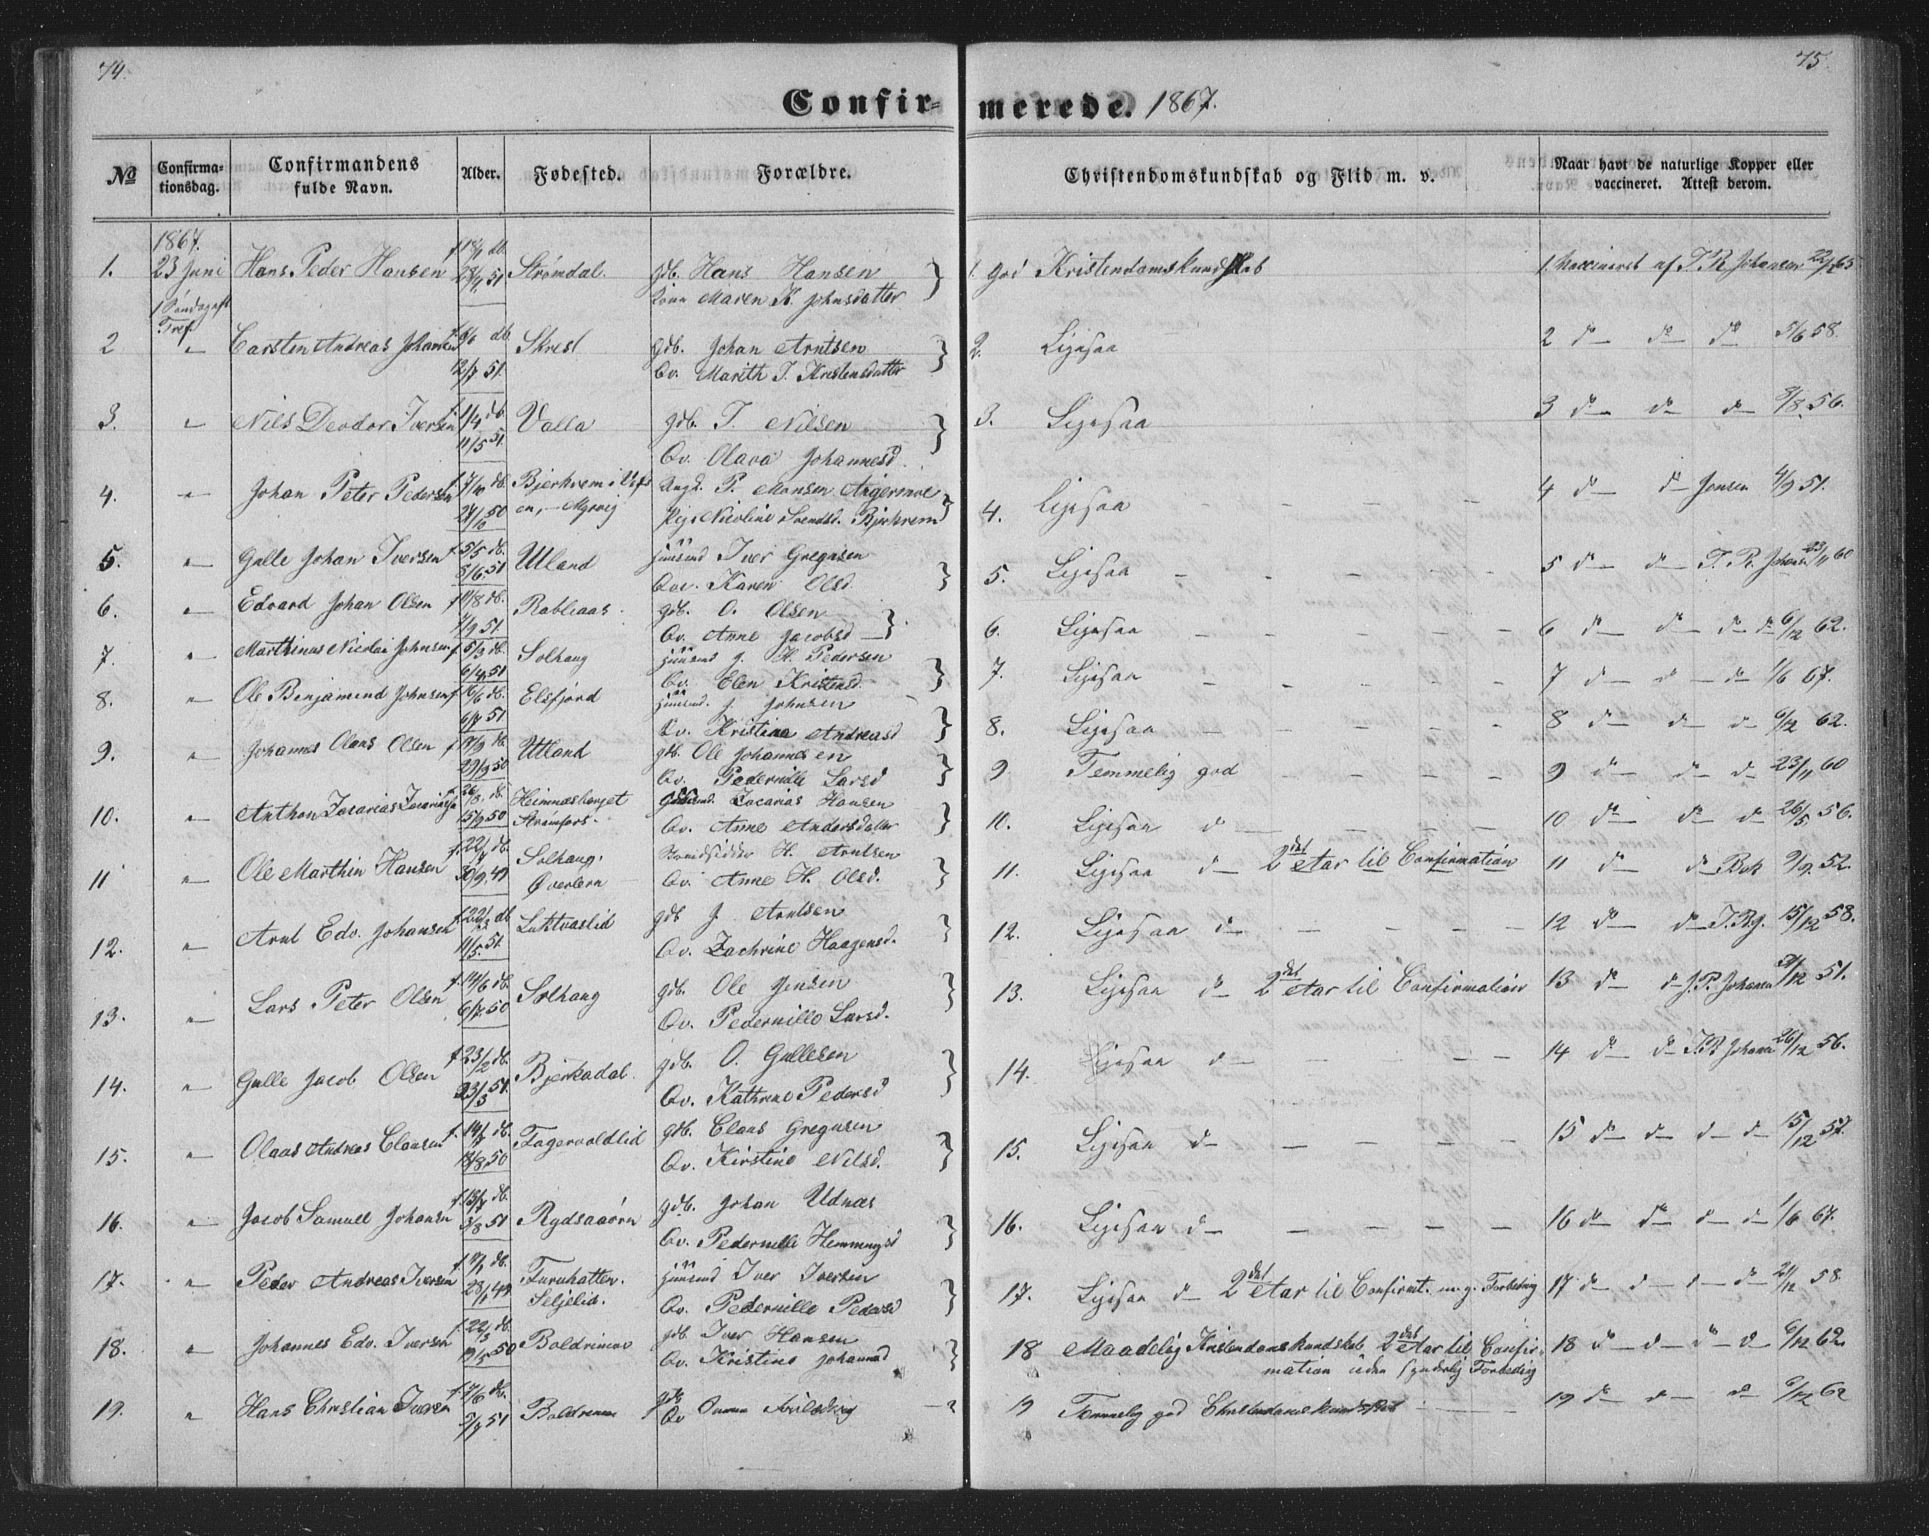 74.
75.
Confirmerede. 1867.
№ Confirmationsdag. Confirmandens fulde Navn. Alder. Fødested. Forældre. Christendomskundskab og Flid m. v. Naar havt de naturlige Kopper eller vaccineret. Attest derom.
1867.
1. 23 Juni Hans Peder Hansen f 18/1 db. 28/1 51 Strømdal. gdb. Hans Hansen Kone Maren K. Johnsdatter 1. god Kristendomskundskab 1. Vaccineret af T. R. Johansen 22/12 65
2 " Carsten Andreas Johansen f 6/6 db 12/7 51. Skresl gdb. Johan Arntsen Qv. Marith J. Kristensdatter 2. Ligesaa 2 do do do 5/6 58.
3. " Nils Deodor Iversen f 1/4 db. 11/5 51. Valla gdb. I. Nilsen Qv. Olava Johannesd. 3. Ligesaa 3 do do do 9/8 56.
4. " Johan Peter Pedersen f 7/10 db. 27/12 50 Bjerkrem i Vefsen, Myrvig Ungk. P. Monsen Angermoe Pige Nicoline Svendsd. Bjerkrem 4. Ligesaa 4 do do Jensen 4/9 51.
5. " Gulle Johan Iversen f. 5/5 db. 8/6 51 Utland huusmd Iver Gregusen Qv. Karen Olsd. 5. Ligesaa 5 do do T. R. Johans 23/11 60
6. " Edvard Johan Olsen f 10/8 db. 7/9 51. Rabliaas gdb. O. Olsen Qv. Anne Jacobsd 6. Ligesaa 6 do do do do 6/12 62.
7. " Marthinus Nicolai Johnsen f 5/3 db. 6/4 51 Solhaug huusmd J. H. Pedersen Qv. Elen Kristensd. 7. Ligesaa 7 do do do 1/6 67.
8. " Ole Benjamind Johnsen f 16/6 db. 6/7 51. Elsfjord huusmd. J. Johnsen Qv. Kristina Andreasd 8. Ligesaa 8 do do do 6/12 62.
9. " Johannes Olaus Olsen f 19/9 db. 29/9 50 Utland gdb. Ole Johannesen Qv. Pedernille Larsd 9. Temmelig god 9 do do do 23/11 60
10. " Anthon Zacarias Zacariasen f. 26/8 db. 15/9 50 Heimneshavet Strømfors. Zacarias Hansen Qv. Anne Andersdatter 10. Ligesaa do 10 do do do 26/5 56.
11 " Ole Marthin Hansen f. 22/7 db. 30/9 49 Solhaug. Øverlern Strandsidder H. Arntsen Qv. Anne H. Olsd. 11. Ligesaa do 2det Aar til Confirmation 11 do do Bek 9/9 52.
12. " Arnt Edv. Johansen f. 22/3 db 11/5 51. Luktvaslid gdb J. Arntsen Qv. Zachrine Haagensd. 12. Ligesaa do 12 do do J. Bg. 15/12 58.
13. " Lars Peter Olsen f. 14/6 db. 6/7 50 Solhaug gdb. Ole Jensen Qv. Pedernille Larsd. 13. Ligesaa do 2det Aar til Confirmation 13 do do J. P. Johansen 31/12 51.
14. " Gulle Jacob Olsen f 23/2 db. 23/3 51. Bjerkadal. gdb. O. Gullesen Qv. Kathrine Pedersd 14. Ligesaa do 14 do do T. R Johans 26/12 56.
15. " Olaus Andreas Clausen f. 14/7 db. 18/8 50 Fagervoldlid gdb. Claus Gregusen Qv. Kirstine Nilsd. 15. Ligesaa do 15 do do do do 15/12 57.
16. " Jacob Samuel Johansen f. 13/7 db. 3/8 51 Rydsaaørn gdb. Johan Udnæs Qv. Pedernille Hemmingsd 16. Ligesaa do 16 do do do do 1/6 67.
17. " Peder Andreas Iversen f 9/1 db. 28/1 49 Furuhatten. Seljelid. huusmd Iver Iversen Qv. Pedernille Pedersd 17. Ligesaa do 2det Aar til Confirmt. m. g. Forbedring 17 do do do do 21/12 58.
18. " Johannes Edv. Iversen f. 22/3 db. 19/5 50 Boldrimo gdb Iver Hansen Qv. Kristine Johannesd 18 Maadelig Kristendomskundskab 2det Aar til Confirmation uden synderlig Forbedring 18 do do do do 6/12 62
19. " Hans Christian Iversen f 7/6 db. 5/7 51 Boldrimo gdb Qv 19 Temmelig god Christendomskundskab 19 do do do 6/12 62